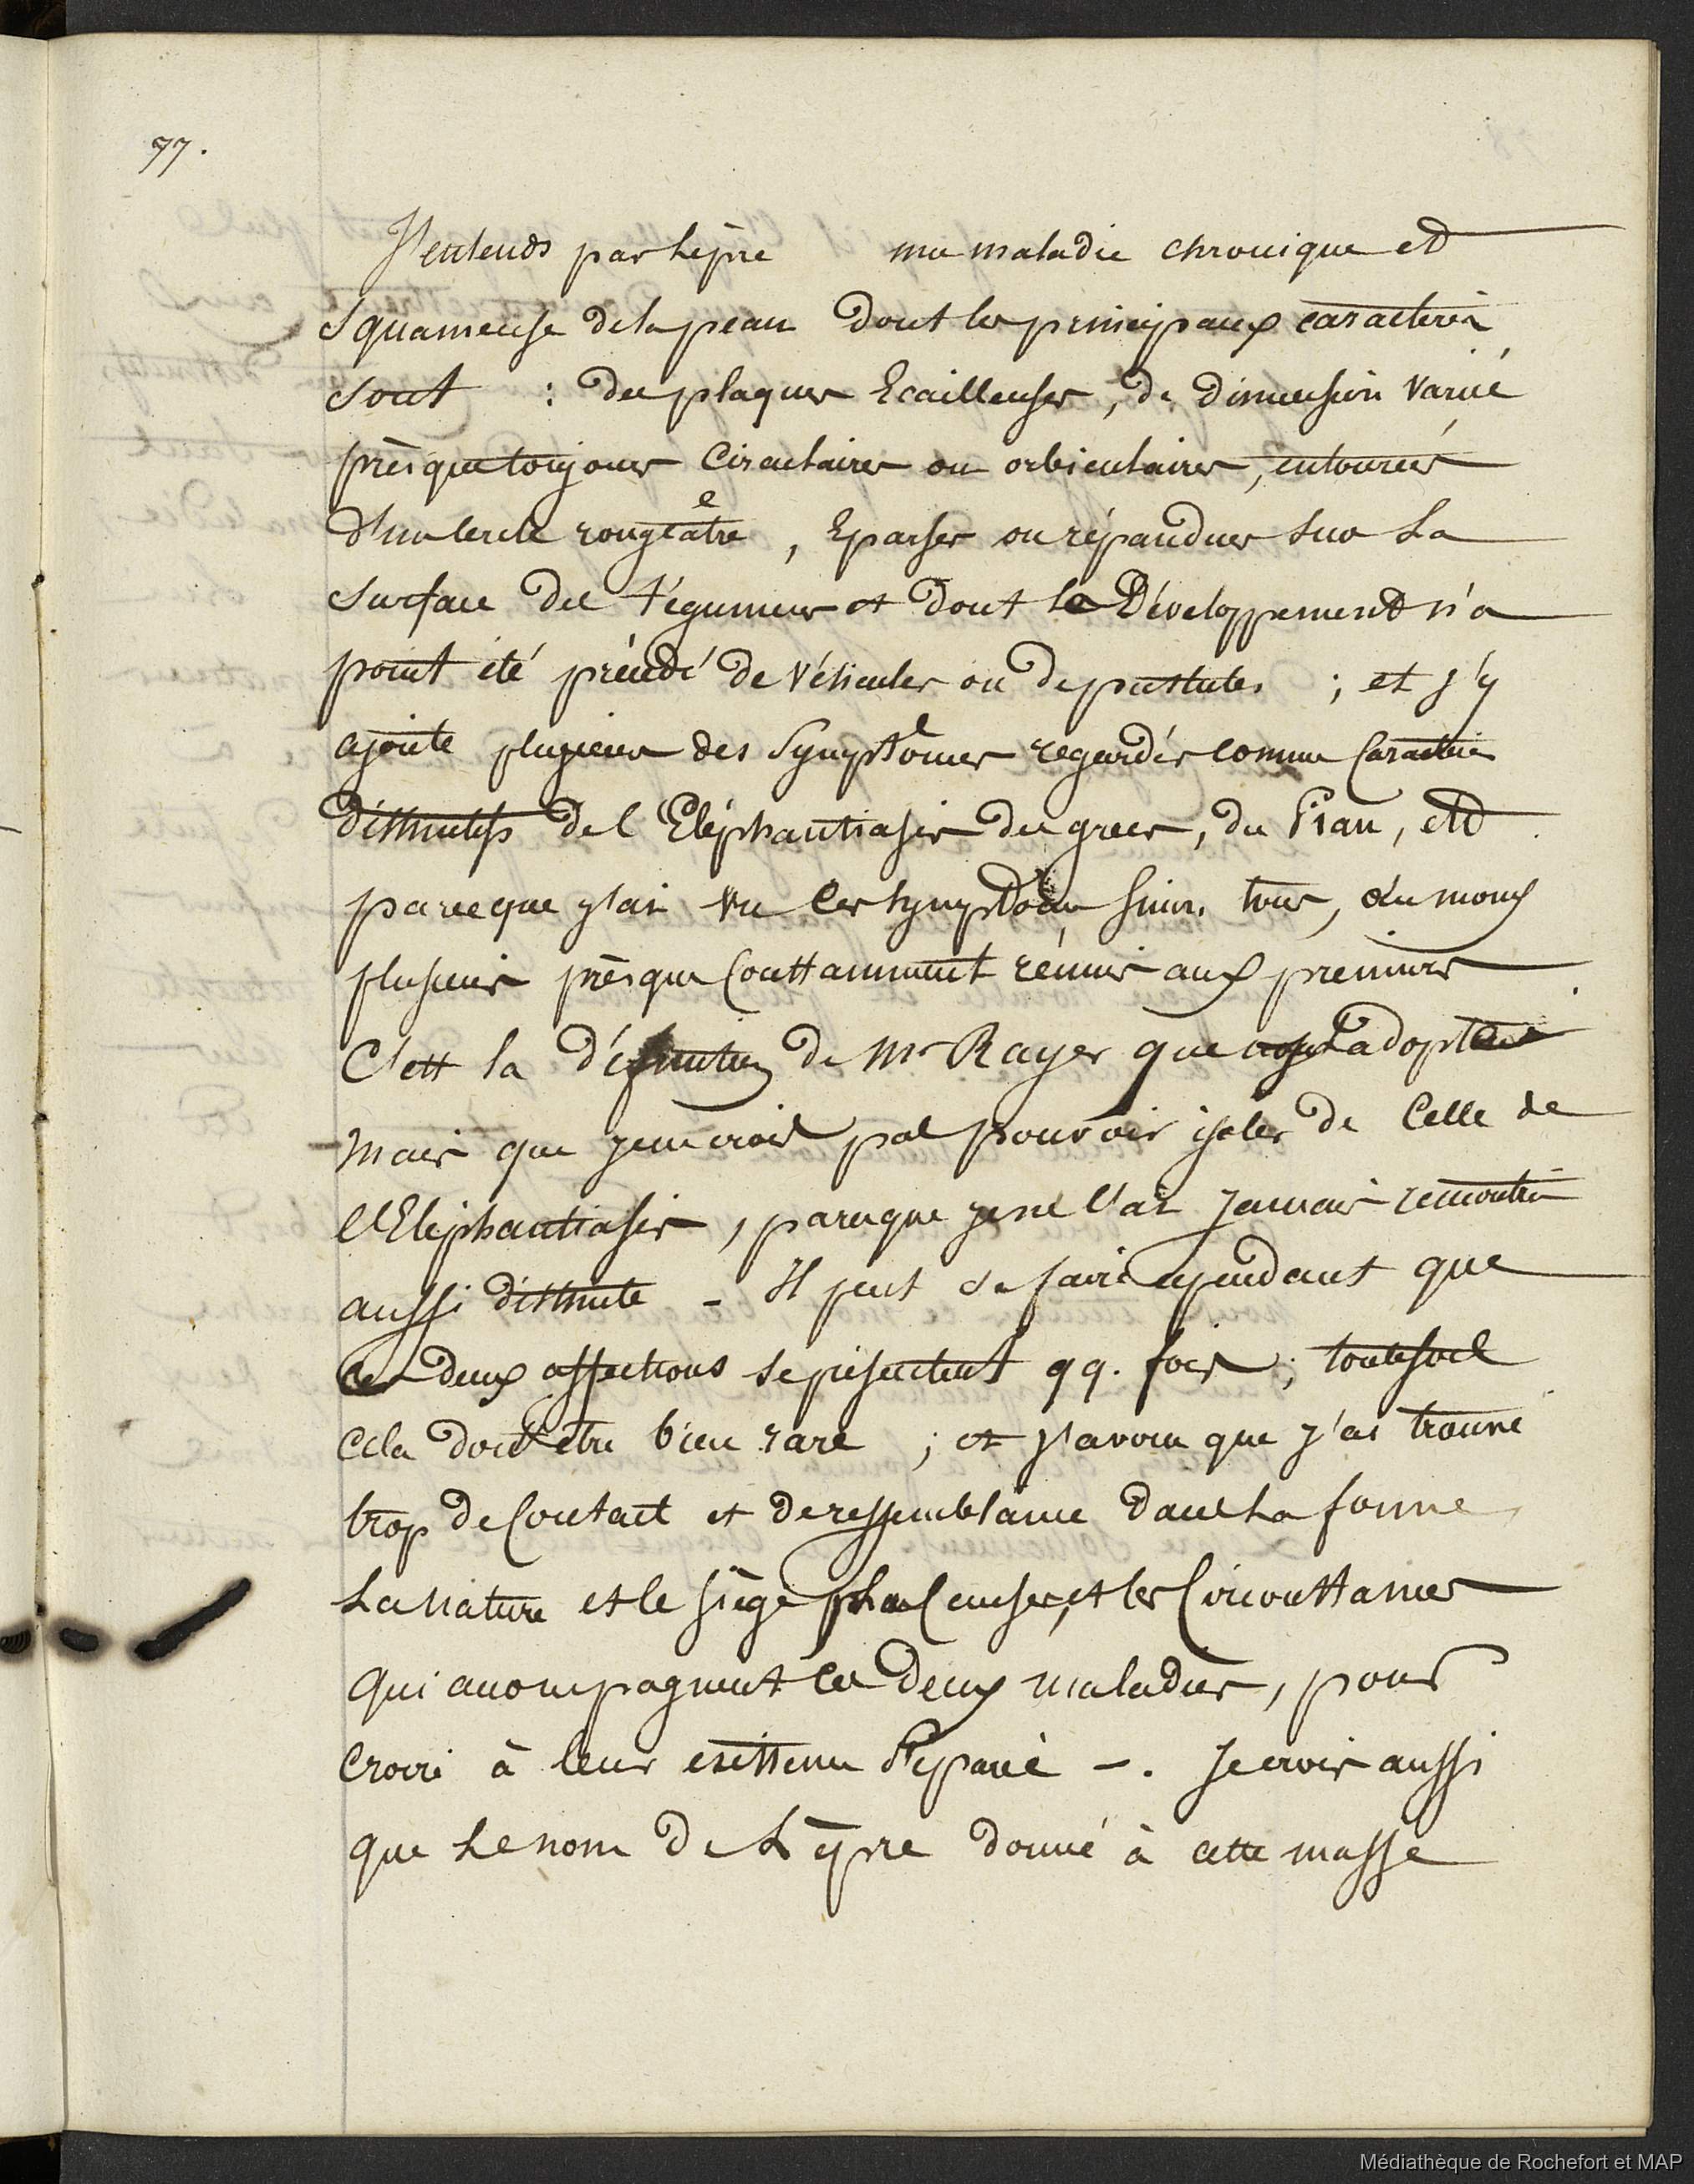 77.
J'entends par Lèpre une maladie chronique et
Squameuse de la peau dont les principaux caractères
sont : des plaques Ecailleuses, de dimension variée
prèsque toujours Circulaires ou orbiculaires, entourées
d'un Cercle rougeâtre, Eparses ou répandues sur La
surface des tégumens et dont le Développement n'a
point été précédé de Vésicules ou de pustules ; et j'y
ajoute plusieurs des Symptômes regardés comme Caractères
distinctifs de l'Eléphantiasis des grecs, du Pian, et
parceque j'ai vu les Symptômes, sinon tous, du moins
plusieurs prèsque Constamment réunis aux premiers.
C'est la définition de Mr Rayer que adopte
Mais que je ne crois pas pouvoir isoler de Celle de
l'Eléphantiasis, parceque je ne l'ai Jamais rencontrée
aussi distincte - Il peut se faire cependant que
ces deux affections se présentent qq. fois ; toutefois
Cela doit être bien rare ; et J'avoue que j'ai trouvé
trop de Contact et de ressemblance dans La forme
La nature et le siège, Causes, et les Circonstances
qui accompagnent ces deux maladies, pour
Croire à leur existence Séparée -. Je crois aussi
que Le nom De Lèpre donné à cette masse
Médiathèque de Rochefort et MAP